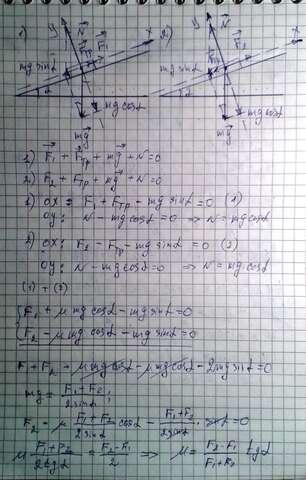 1) y N x 2) y N
F₁ Fтр F₂
mg sinα mg sinα
α mg cosα α mg cosα
mg mg
1) F₁ + Fтр + mg + N = 0
2) F₂ + Fтр + mg + N = 0
1) OX: F₁ + Fтр - mg sinα = 0 (1)
OY: N - mg cosα = 0 => N = mg cosα
2) OX: F₂ - Fтр - mg sinα = 0 (2)
OY: N - mg cosα = 0 => N = mg cosα
(1) + (2)
F₁ + μ mg cosα - mg sinα = 0
F₂ - μ mg cosα - mg sinα = 0
F + F₂ + μ mg cosα - μ mg cosα - 2mg sinα = 0
mg = F₁+F₂ / 2 sinα ;
F₂ - μ F₁+F₂ / 2 sinα cosα - F₁+F₂ / 2 sinα sinα = 0
μ F₁+F₂ / 2 tgα = F₂-F₁ / 2 => μ = F₂-F₁ / F₁+F₂ tgα